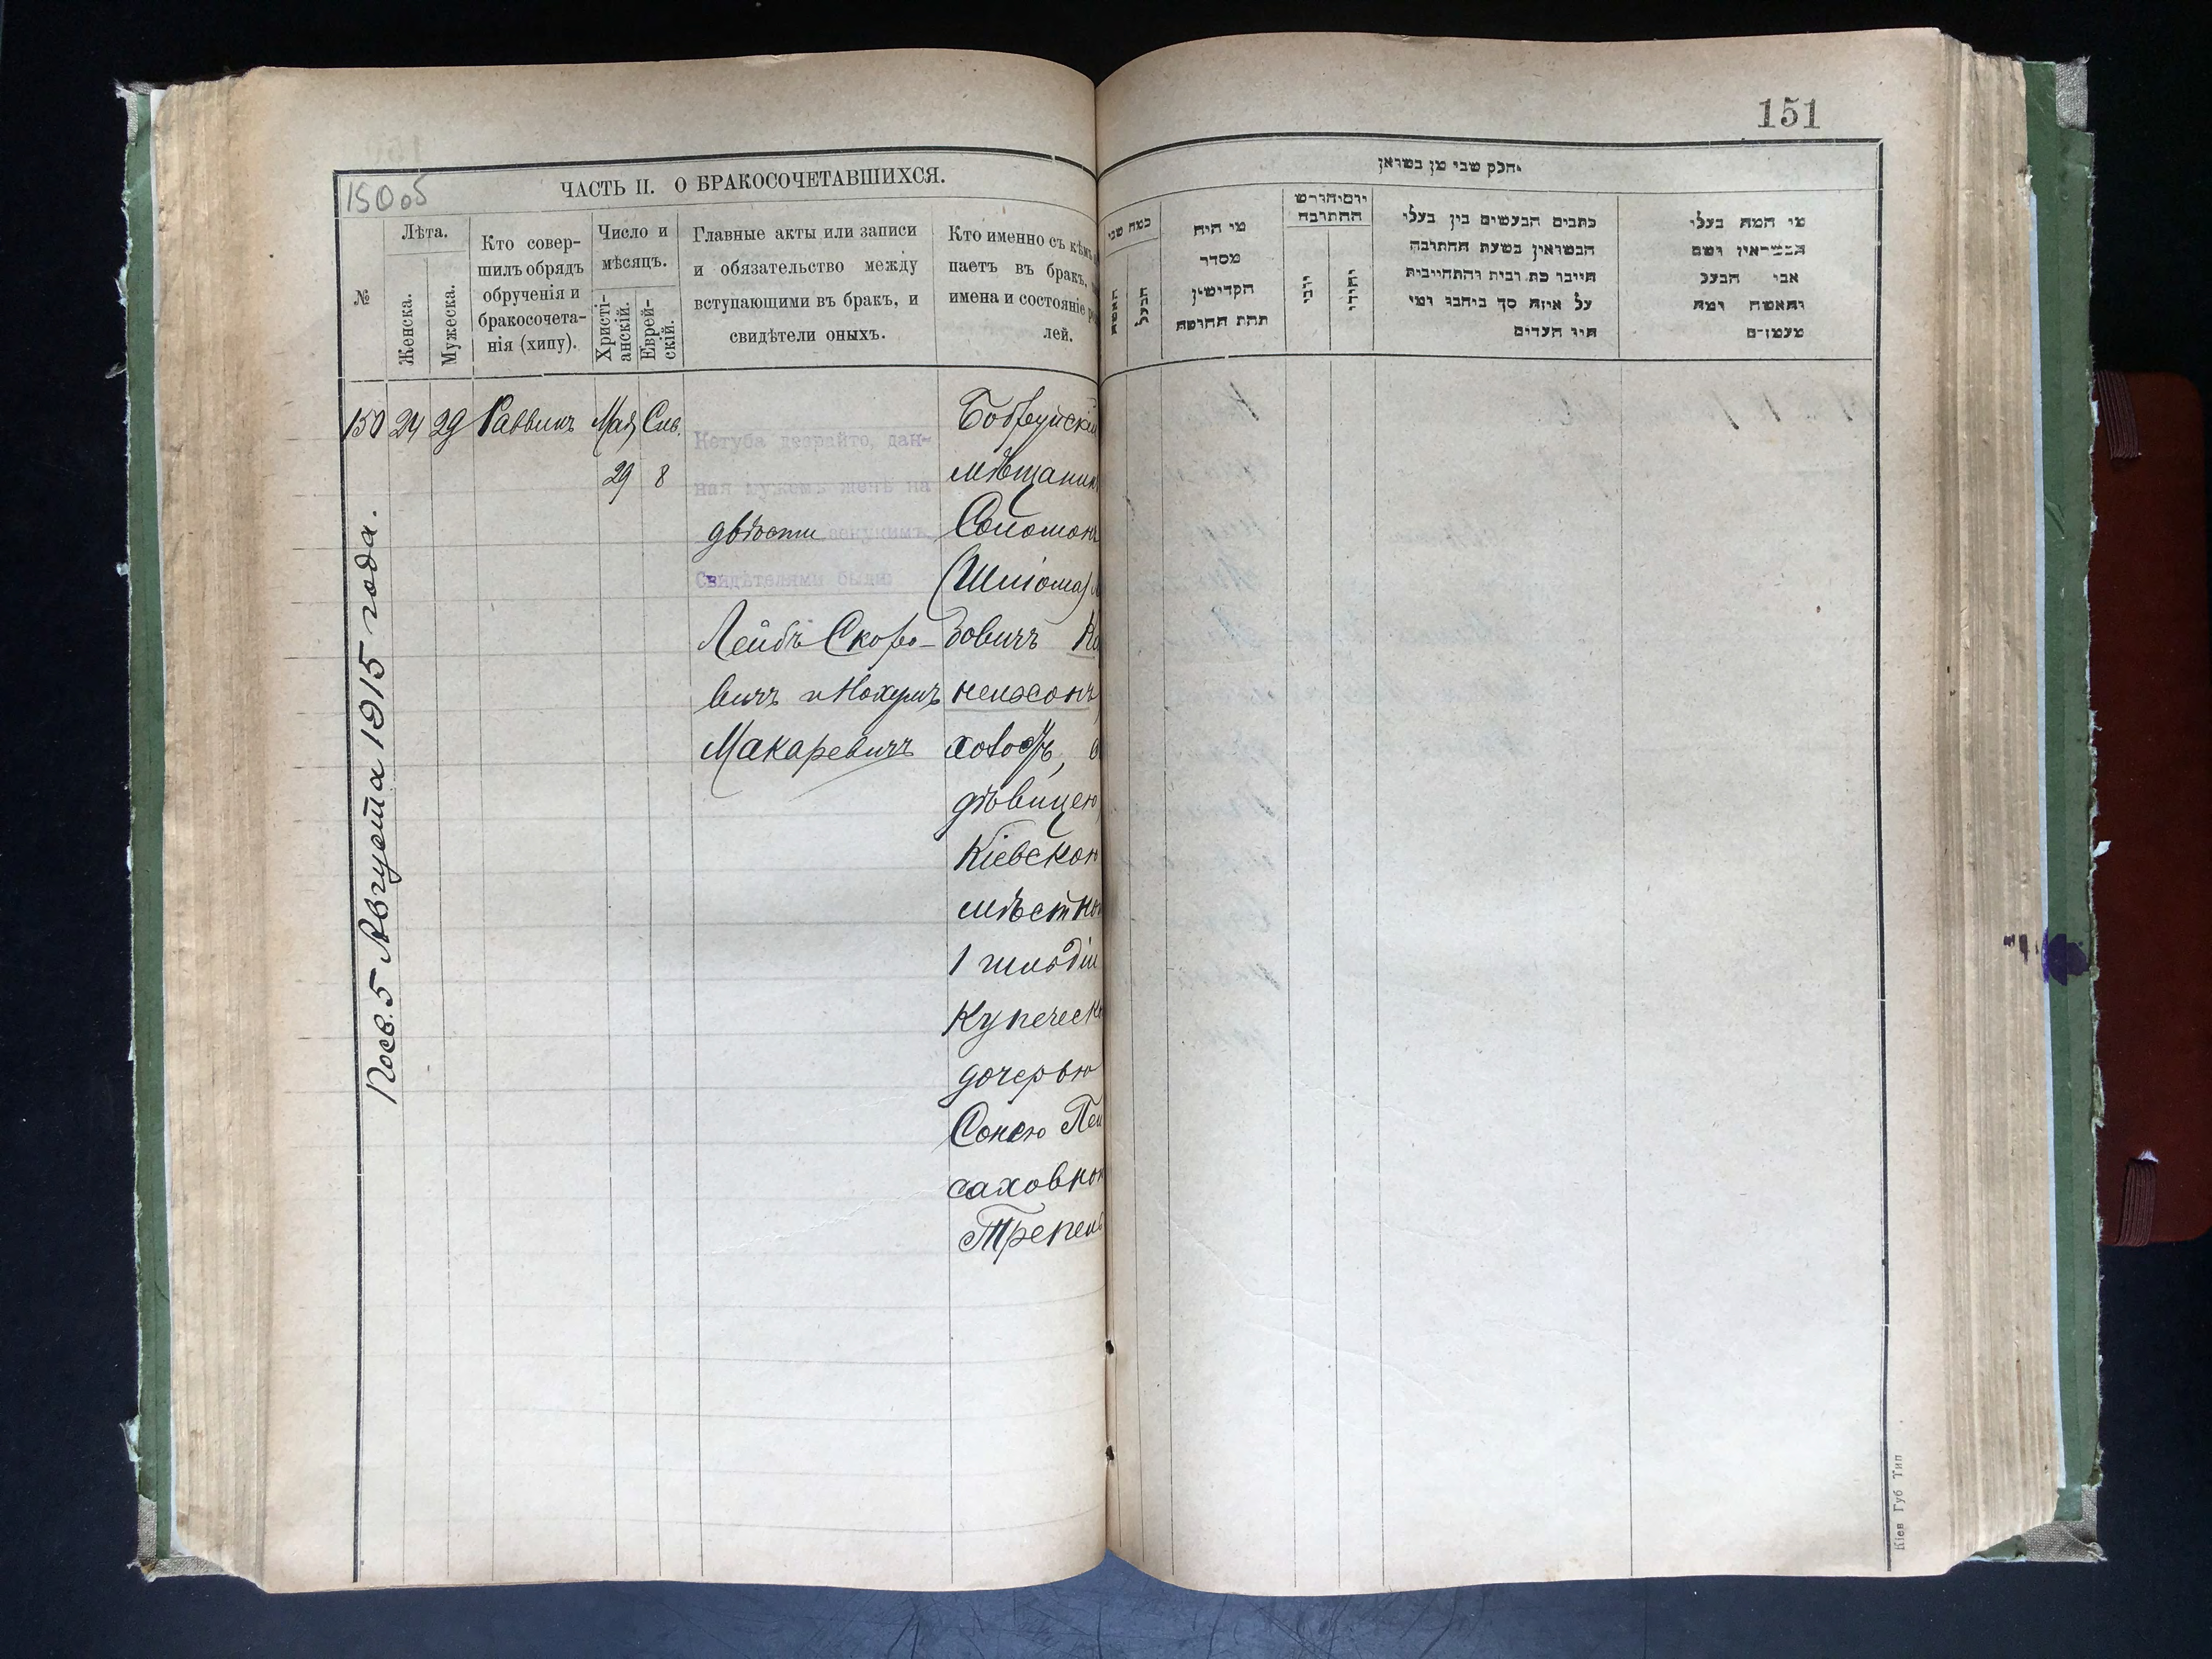 151
150 об
ЧАСТЬ II. О БРАКОСОЧЕТАВШИХСЯ.
№
Лѣта.
Женска.
Мужеска.
Кто совер-
шилъ обрядъ
обрученія и
бракосочета-
нія (хипу).
Число и
мѣсяцъ.
Христі-
анскій.
Еврей-
скій.
Главные акты или записи
и обязательство между
вступающими въ бракъ, и
свидѣтели оныхъ.
Кто именно съ кѣмъ
паетъ въ бракъ,
имена и состояніе
лей.
150 24 29 Раввинъ Мая Сив.
29 8
Кетуба деорайто, дан-
ная мужемъ женѣ на
двѣсти зекукимъ.
Свидѣтелями были
Лейбъ Скоро-
вичъ и Нохумъ
Макаревичъ
Бобруйскій
мѣщанинъ
Соломонъ
(Шліома)
зовичъ
ненсонъ,
холостъ,
дѣвицею
Кіевскою
мѣстною
1 гильдіи
Купеческ
дочерью
Сонею Пей
саховною
Трепель
Посв. 5 Августа 1915 года.
חלק שני מן נשואין
כמה שני
האשה
הבעל
מי היה
מסדר
הקדושין
תחת החופה
יום וחודש
החתונה
יוני
יהודי
כתבים הנעשים בין בעלי
הנשואין בשעת החתונה
על איזה סך ניתנו ומי
היו העדים
מי המה בעלי
הנשואין ושם
אבי הבעל
והאשה ומה
מעמדם
Кіев Губ Тип